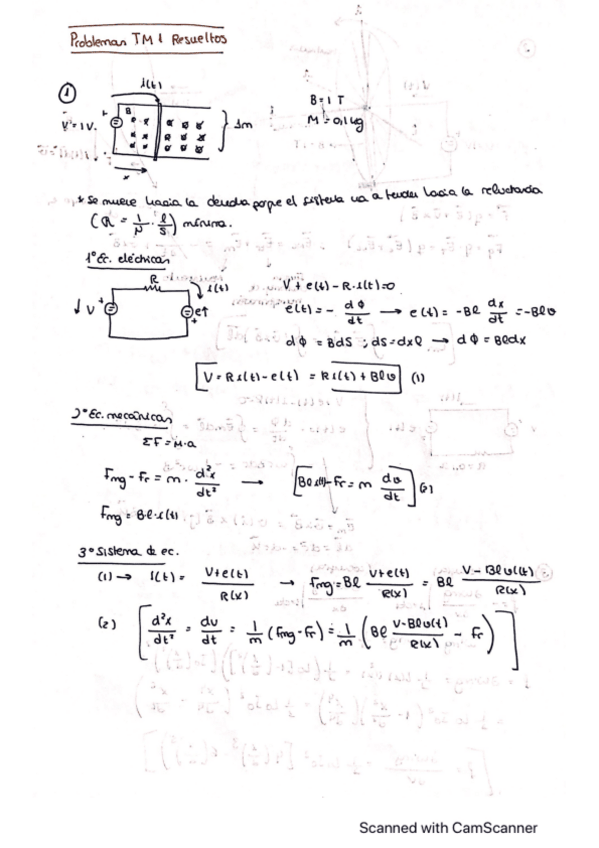 Problemas TM1 Resueltos
1
i(t)
V = 1V.
+
B
x
1m
B = 1 T
M = 0,1 kg
* Se mueve hacia la derecha porque el sistema va a tender hacia la reluctancia
(R = 1/N · l/S) mínima.
1º Ec. eléctricas
R
i(t)
↓ V +
e↑
+
V + e(t) - R·i(t) = 0
e(t) = - dΦ/dt → e(t) = -Bl dx/dt = -Blv
dΦ = BdS ; dS = dxl → dΦ = Bldx
V = Ri(t) - e(t) = Ri(t) + Blv (1)
2º Ec. mecánicas
ΣF = M·a
Fmg - Fr = m · d²x/dt² → [Bl i(t) - Fr = m dv/dt] (2)
Fmg = Bl·i(t)
3º Sistema de ec.
(1) → i(t) = V+e(t)/R(x) → Fmg = Bl V+e(t)/R(x) = Bl V - Blv(t)/R(x)
(2) [d²x/dt² = dv/dt = 1/m (Fmg - Fr) = 1/m (Bl V-Blv(t)/R(x) - Fr)]
Scanned with CamScanner